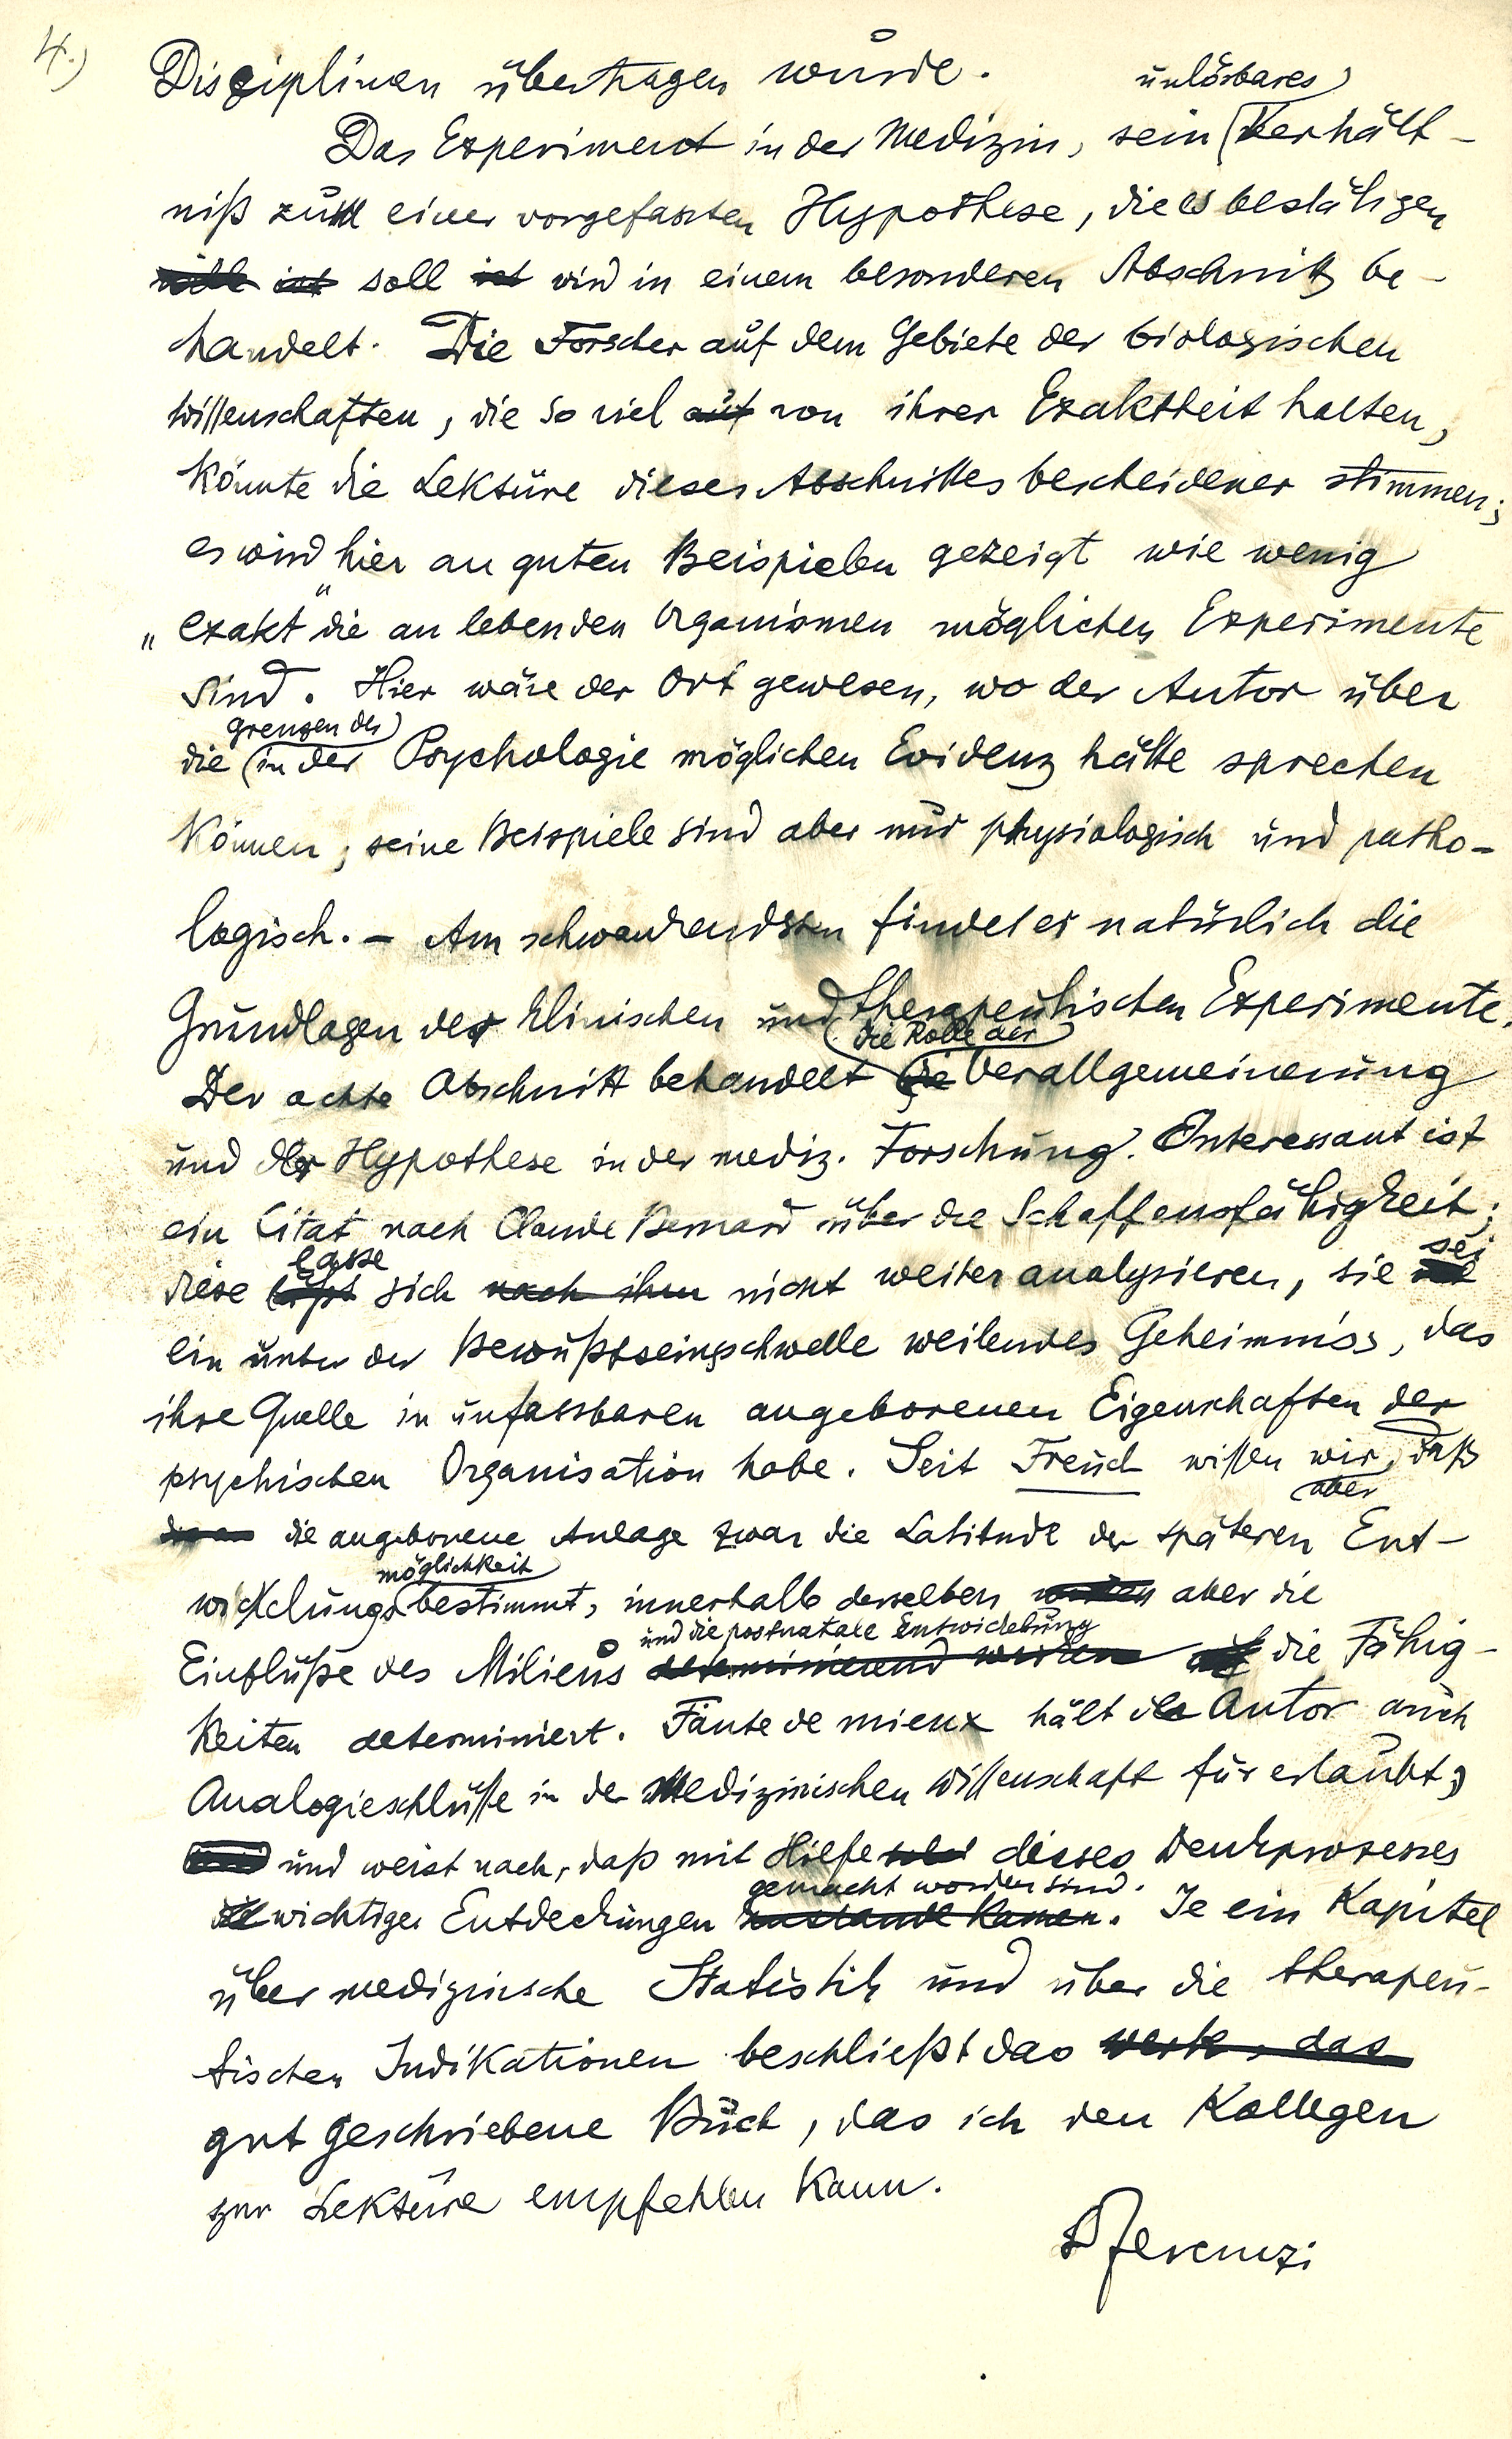 4.)
Disziplinen übertragen wurde.
unlösbares
Das Experiment in der Medizin, sein Verhält-
niß zu einer vorgefassten Hypothese, die es bestätigen
soll wird in einem besonderen Abschnitt be-
handelt. Die Forscher auf dem Gebiete der biologischen
Wissenschaften, die so viel auf von ihrer Exaktheit halten,
könnte die Lektüre dieses Abschnittes bescheidener stimmen;
es wird hier an guten Beispielen gezeigt wie wenig
„exakt" die an lebenden Organismen möglichen Experimente
sind. Hier wäre der Ort gewesen, wo der Autor über
grenzen der
die in der Psychologie möglichen Evidenz hätte sprechen
können; seine Beispiele sind aber nur physiologisch und patho-
logisch. – Am schwankendsten findet er natürlich die
Grundlagen der klinischen und therapeutischen Experimente.
die Rolle der
Der achte Abschnitt behandelt die Verallgemeinerung
und der Hypothese in der mediz. Forschung. Interessant ist
ein Citat nach Claude Bernard über die Schaffensfähigkeit;
lasse sei
diese läßt sich nach ihm nicht weiter analysieren, sie
ein unter der Bewußtseinsschwelle weilendes Geheimniss, das
ihre Quelle in unfassbaren angeborenen Eigenschaften der
psychischen Organisation habe. Seit Freud wissen wir, daß
aber
die angeborene Anlage zwar die Latitude der späteren Ent-
möglichkeit
wicklungsbestimmt, innerhalb derselben aber die
und die postnatale Entwickelung
Einflüße des Milieus determinierend werden auf die Fähig-
keiten determiniert. Faute de mieux hält der Autor auch
Analogieschlüsse in der Medizinischen Wissenschaft für erlaubt,
und weist nach, daß mit Hilfe dieses Denkprozesses
gemacht worden sind.
wichtige Entdeckungen zustande kamen. Je ein Kapitel
über medizinische Statistik und über die therapeu-
tischen Indikationen beschließt das Werk, das
gut geschriebene Buch, das ich den Kollegen
zur Lektüre empfehlen kann.
S Ferenczi